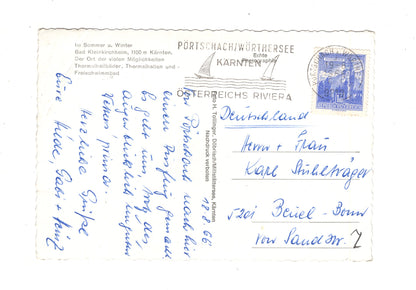 Im Sommer u. Winter
Bad Kleinkirchheim, 1100 m Kärnten.
Der Ort der vielen Möglichkeiten
Thermalhallenbäder, Thermalhallen- und
Freischwimmbad
PÖRTSCHACH/WÖRTHERSEE
KÄRNTEN
ÖSTERREICHS RIVIERA
Echte
Nachdruck verboten
18.8.66
Von Pörtschach nach hier
einen Ausflug gemacht
Es geht uns, trotz des
augenblicklich ungünst.
Wetters prima.
Herzliche Grüße
Eure Hilde, Gabi + Heinz
Deutschland
Herrn + Frau
Karl Stuhlträger
5201 Beuel-Bonn
von Sandstr. 7